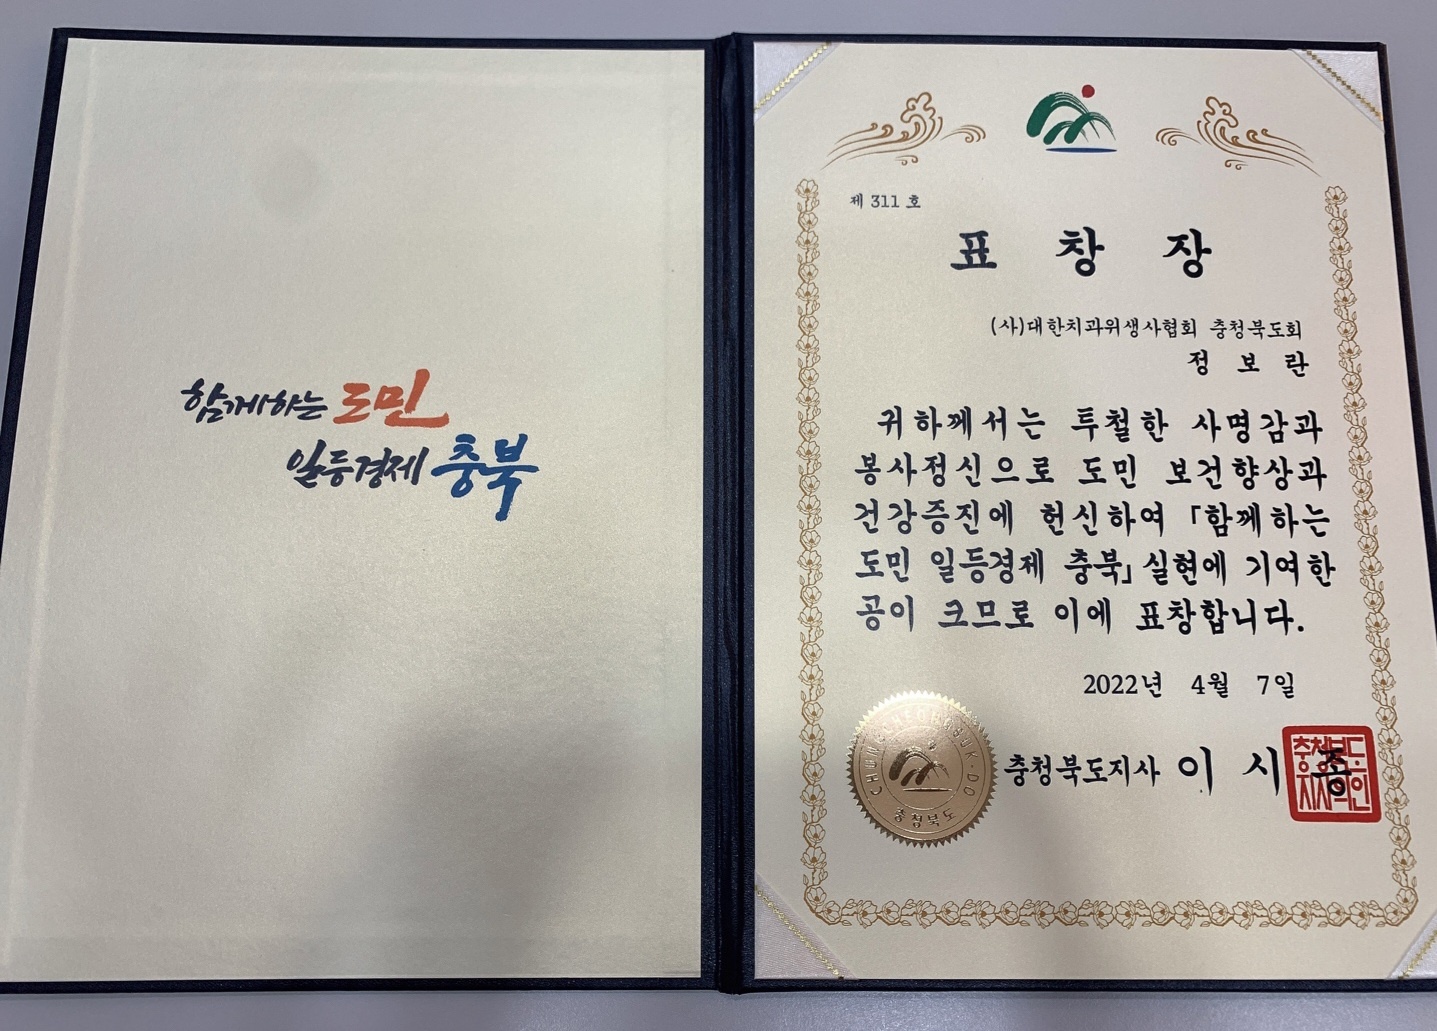 함께하는 도민
일등경제 충북
제 311 호
표 창 장
(사)대한치과위생사협회 충청북도회
정 보 란
귀하께서는 투철한 사명감과
봉사정신으로 도민 보건향상과
건강증진에 헌신하여 「함께하는
도민 일등경제 충북」실현에 기여한
공이 크므로 이에 표창합니다.
2022년 4월 7일
충청북도지사 이 시 종
충청북도
지사의인
CHUNGCHEONGBUK-DO
충청북도